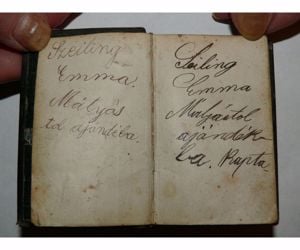 Szeiling
Emma.
Mátyás
tól ajándéba.
Seiling
Emma
Mátjástol
ajándék
ba. Kapta